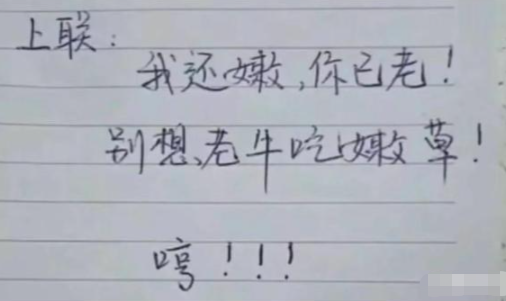 上联：
我还嫩，你已老！
别想、老牛吃嫩草！
哼！！！